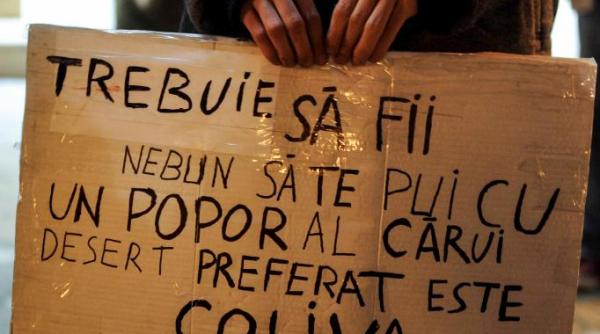 TREBUIE SĂ FII
NEBUN SĂ TE PUI CU
UN POPOR AL CĂRUI
DESERT PREFERAT ESTE
COLIVA